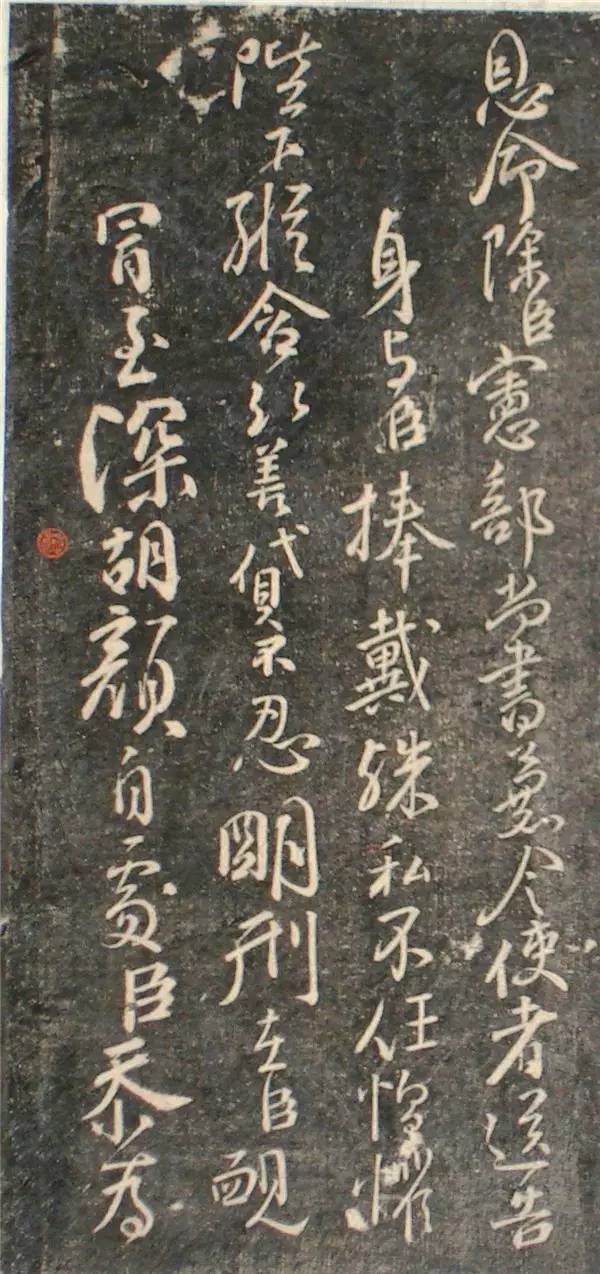 恩命除臣憲部尚書兼令使者送告
身与臣捧戴殊私不任懼
陛下縱含弘善貸不忍明刑在臣靦
冒至深胡顏自處臣忝為